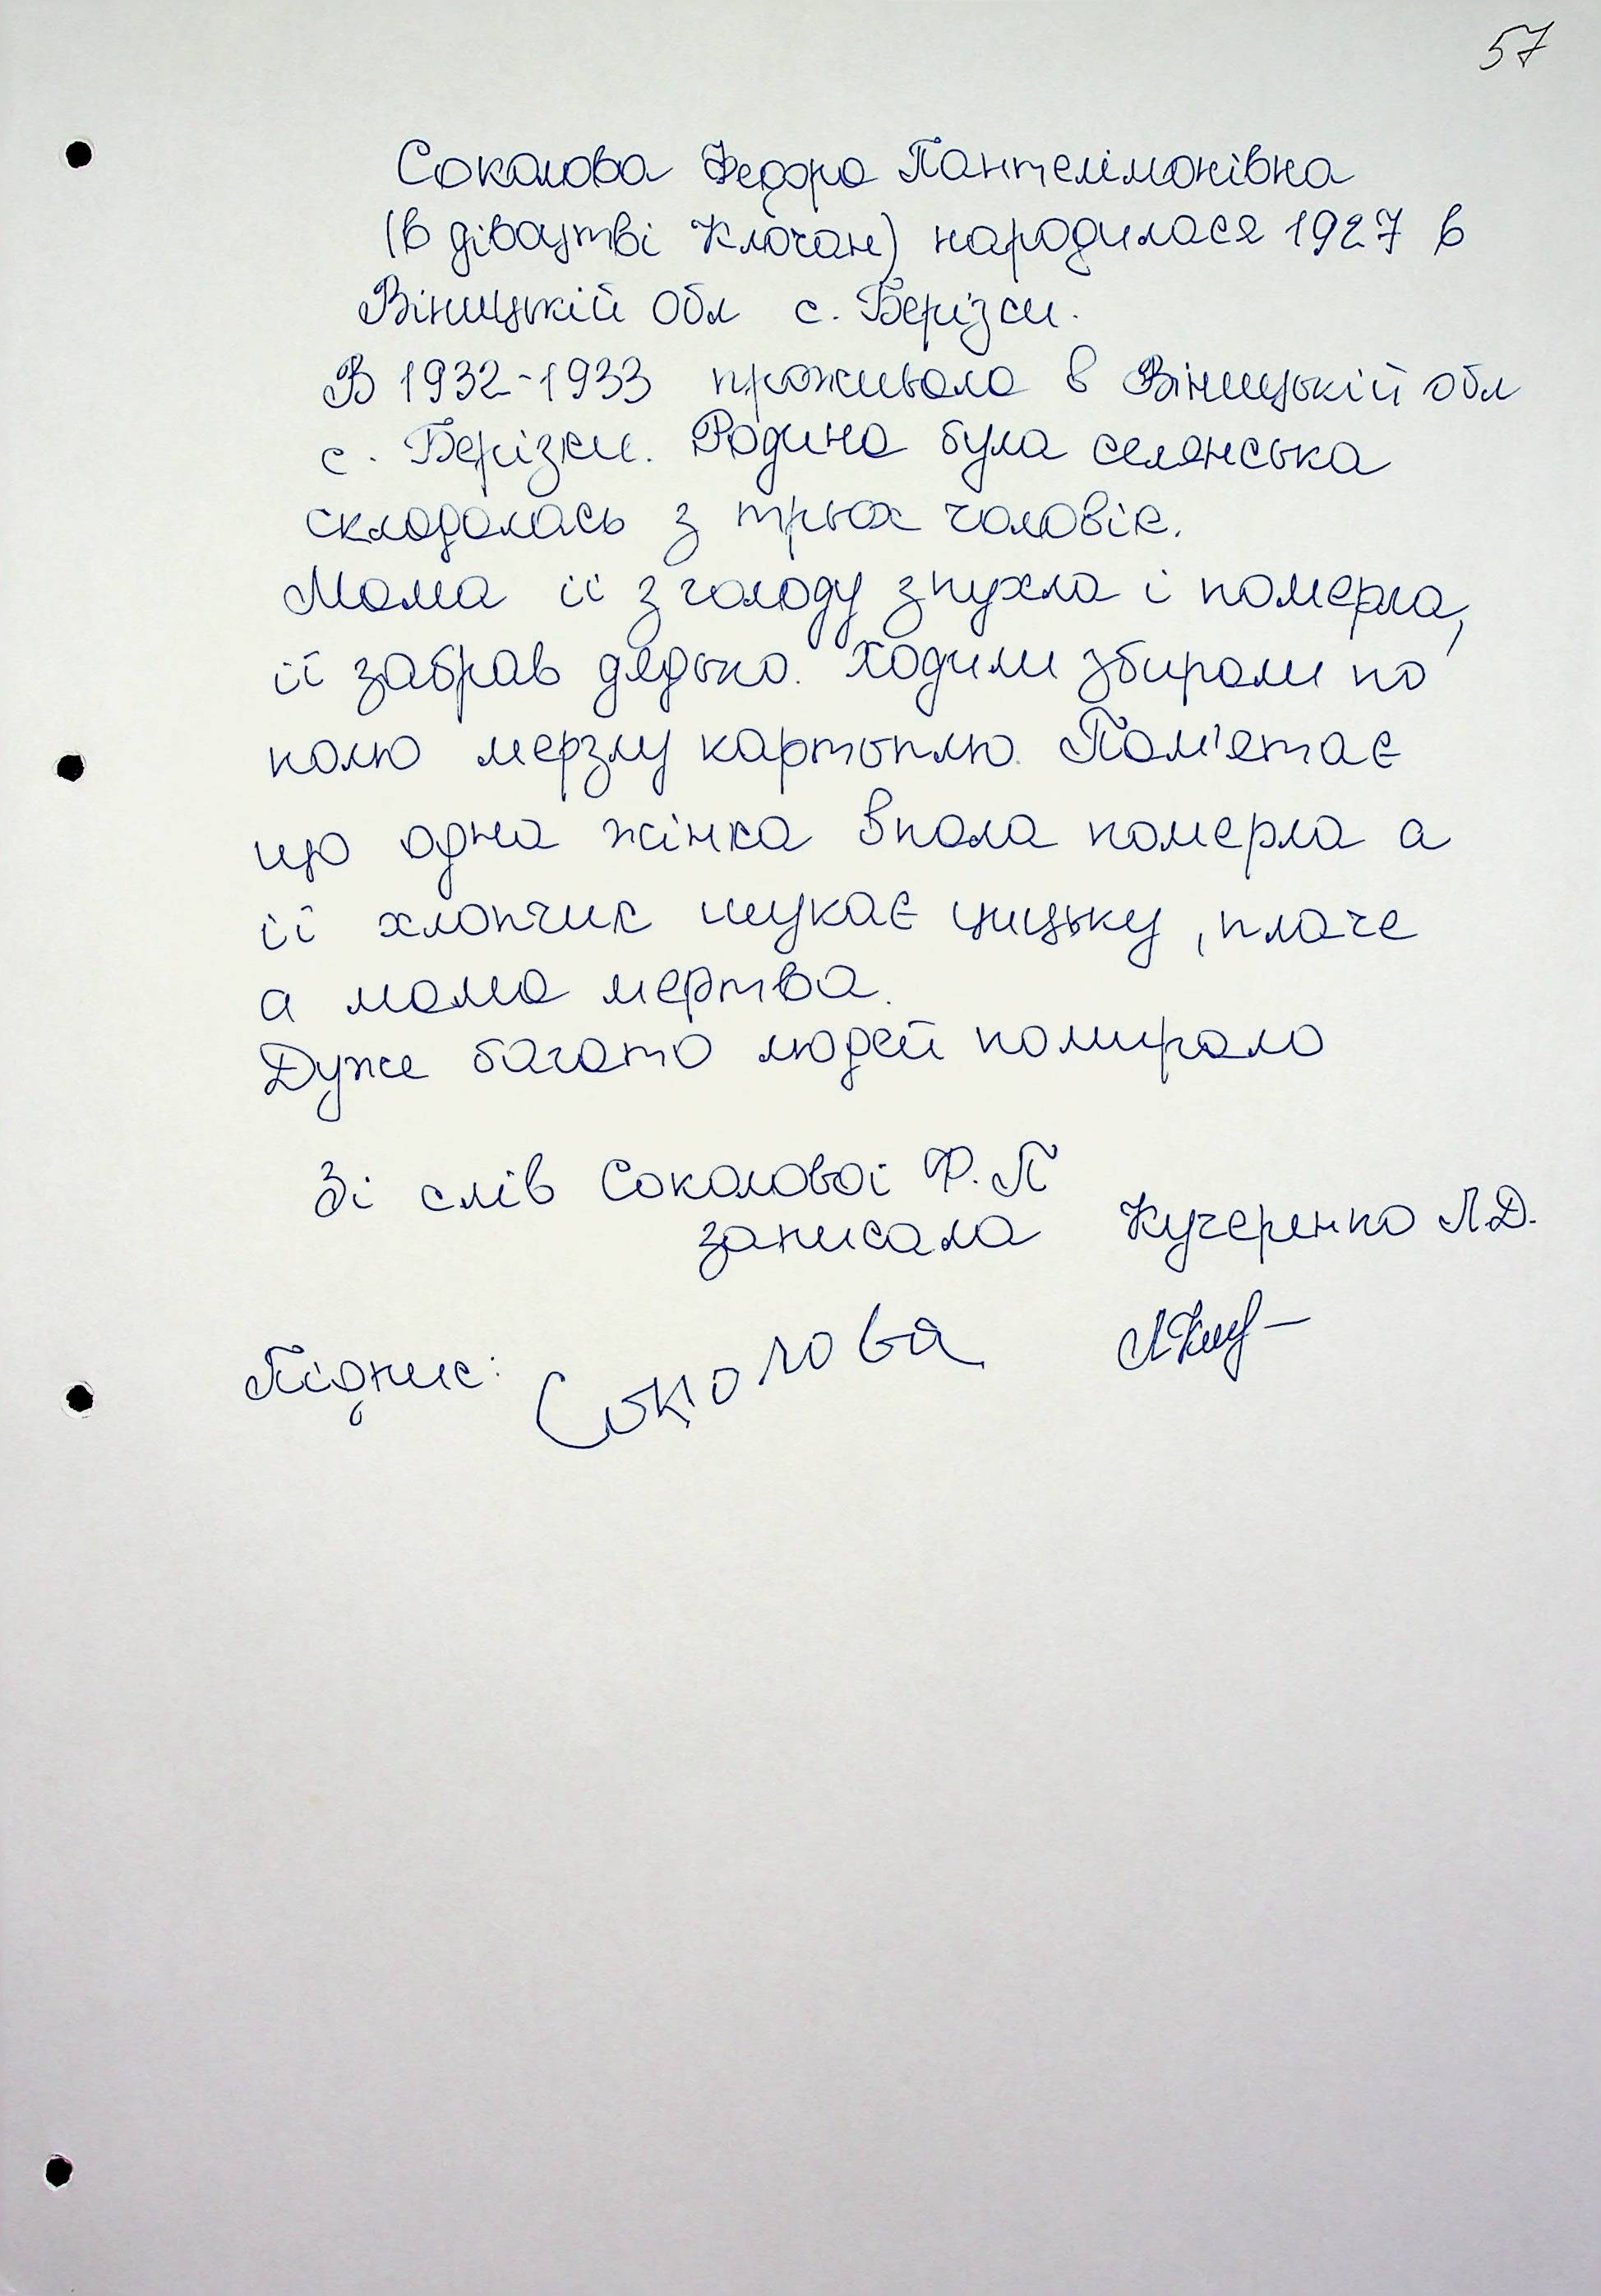 57
Соколова Федора Пантелімонівна
(в дівоцтві Клочан) народилася 1927 в
Вініцькій обл с. Берізки.
В 1932-1933 проживала в Вініцькій обл
с. Берізки. Родина була селянська
складалась з трьох чоловік.
Мама її з голоду зпухла і померла,
її забрав дядько. Ходили збирали по
полю мерзлу картоплю. Пам'ятає
що одна жінка впала померла а
її хлопчик шукає цицьку, плаче
а мама мертва.
Дуже багато людей помирало
Зі слів Соколової Ф.П
записала Кучеренко Л.Д.
Підпис: Соколова